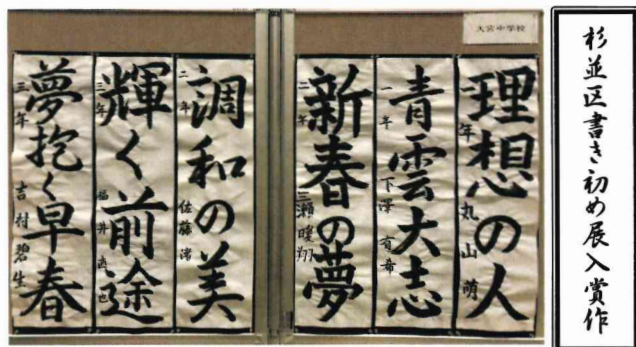 杉並区書き初め展入賞作
大宮中学校
理想の人
一年 丸山 萌
青雲大志
一年 下澤 有希
新春の夢
二年 三瀬 暖翔
調和の美
二年 佐藤 澪
輝く前途
三年 福井 直也
夢抱く早春
三年 吉村 碧生